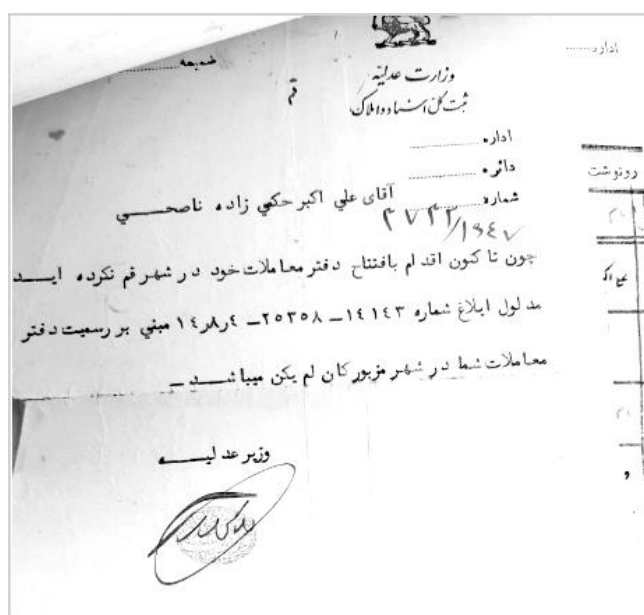 ضمیمه
اداره
وزارت عدلیه
قم
ثبت کل اسناد و املاک
اداره
دائره
رونوشت
شماره
آقای علي اکبر حکمي زاده ناصحــــي
چون تا کنون اقدام بافتتاح دفتر معاملات خود در شهر قم نکرده ایـــد
مد لول ابلاغ شماره ١٤١٤٣ــ ٢٥٣٥٨ــ ٤ر٨ر١٤ مبني بر رسمیت دفتر
معاملات شما در شهر مزبور کان لم یکن میباشــد ــ
وزیر عد لیــــه